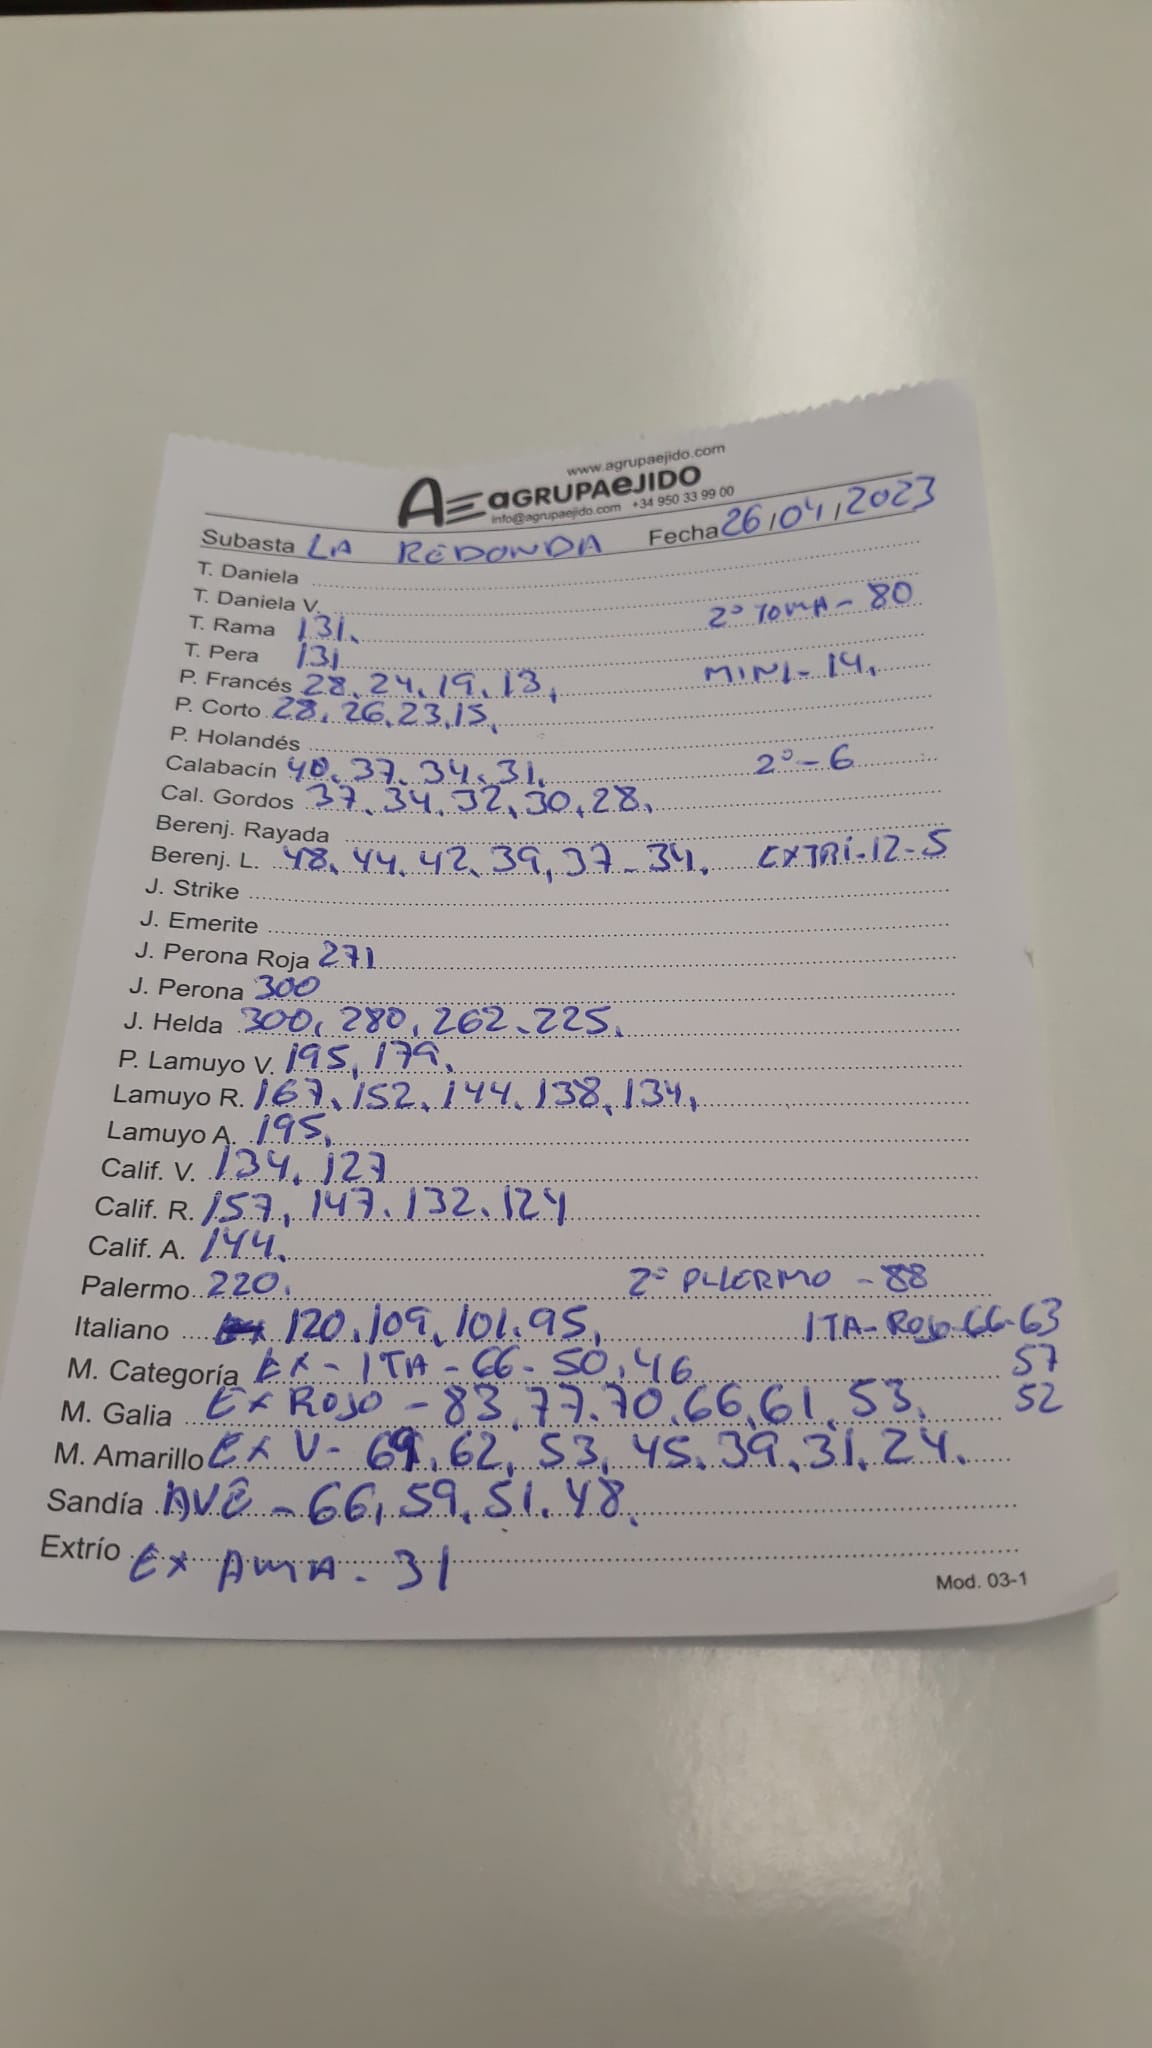 www.agrupaejido.com
AE aGRUPAeJIDO
info@agrupaejido.com +34 950 33 99 00
Subasta LA REDONDA Fecha 26/04/2023
T. Daniela
T. Daniela V. 2º TOMA - 80
T. Rama 131.
T. Pera 131 MINI - 14.
P. Francés 28, 24, 19, 13,
P. Corto 28, 26, 23, 15,
P. Holandés
Calabacín 40, 37, 34, 31. 2º - 6
Cal. Gordos 37, 34, 32, 30, 28,
Berenj. Rayada
Berenj. L. 48, 44, 42, 39, 37 - 34. EXTRI - 12 - 5
J. Strike
J. Emerite
J. Perona Roja 271
J. Perona 300
J. Helda 300, 280, 262, 225.
P. Lamuyo V. 195, 179.
Lamuyo R. 167, 152, 144, 138, 134,
Lamuyo A. 195,
Calif. V. 134, 127
Calif. R. 157, 147, 132, 124
Calif. A. 144.
Palermo 220. 2º PLERMO - 88
Italiano 120, 109, 101, 95, ITA - ROJO - 66 - 63
M. Categoría EX - ITA - 66 - 50, 46 57
M. Galia EX ROJO - 83, 77, 70, 66, 61, 53. 52
M. Amarillo EX V - 69, 62, 53, 45, 39, 31, 24.
Sandía AVE - 66, 59, 51, 48.
Extrío EX AMA - 31
Mod. 03-1